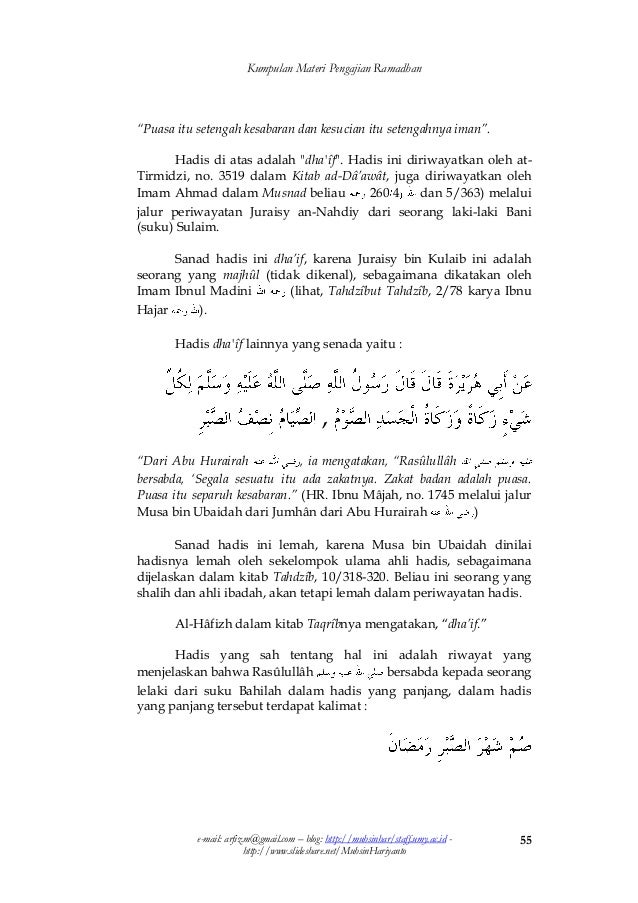 Kumpulan Materi Pengajian Ramadhan
“Puasa itu setengah kesabaran dan kesucian itu setengahnya iman”.
Hadis di atas adalah "dha'îf". Hadis ini diriwayatkan oleh at-
Tirmidzi, no. 3519 dalam Kitab ad-Dâ’awât, juga diriwayatkan oleh
Imam Ahmad dalam Musnad beliau رحمه 260:4 الله dan 5/363) melalui
jalur periwayatan Juraisy an-Nahdiy dari seorang laki-laki Bani
(suku) Sulaim.
Sanad hadis ini dha’if, karena Juraisy bin Kulaib ini adalah
seorang yang majhûl (tidak dikenal), sebagaimana dikatakan oleh
Imam Ibnul Madini رحمه الله (lihat, Tahdzîbut Tahdzîb, 2/78 karya Ibnu
Hajar رحمه الله).
Hadis dha'îf lainnya yang senada yaitu :
عَنْ أَبِي هُرَيْرَةَ قَالَ قَالَ رَسُولُ اللَّهِ صَلَّى اللَّهُ عَلَيْهِ وَسَلَّمَ لِكُلِّ
شَيْءٍ زَكَاةٌ وَزَكَاةُ الْجَسَدِ الصَّوْمُ , الصِّيَامُ نِصْفُ الصَّبْرِ
“Dari Abu Hurairah رضي الله عنه, ia mengatakan, “Rasûlullâh صلى الله عليه وسلم
bersabda, ‘Segala sesuatu itu ada zakatnya. Zakat badan adalah puasa.
Puasa itu separuh kesabaran.” (HR. Ibnu Mâjah, no. 1745 melalui jalur
Musa bin Ubaidah dari Jumhân dari Abu Hurairah رضي الله عنه)
Sanad hadis ini lemah, karena Musa bin Ubaidah dinilai
hadisnya lemah oleh sekelompok ulama ahli hadis, sebagaimana
dijelaskan dalam kitab Tahdzîb, 10/318-320. Beliau ini seorang yang
shalih dan ahli ibadah, akan tetapi lemah dalam periwayatan hadis.
Al-Hâfizh dalam kitab Taqrîbnya mengatakan, “dha’if.”
Hadis yang sah tentang hal ini adalah riwayat yang
menjelaskan bahwa Rasûlullâh صلى الله عليه وسلم bersabda kepada seorang
lelaki dari suku Bahilah dalam hadis yang panjang, dalam hadis
yang panjang tersebut terdapat kalimat :
صُمْ شَهْرَ الصَّبْرِ رَمَضَانَ
e-mail: arfizm@gmail.com – blog: http://muhsinhar/staff.umy.ac.id - 55
http://www.slideshare.net/MuhsinHariyanto